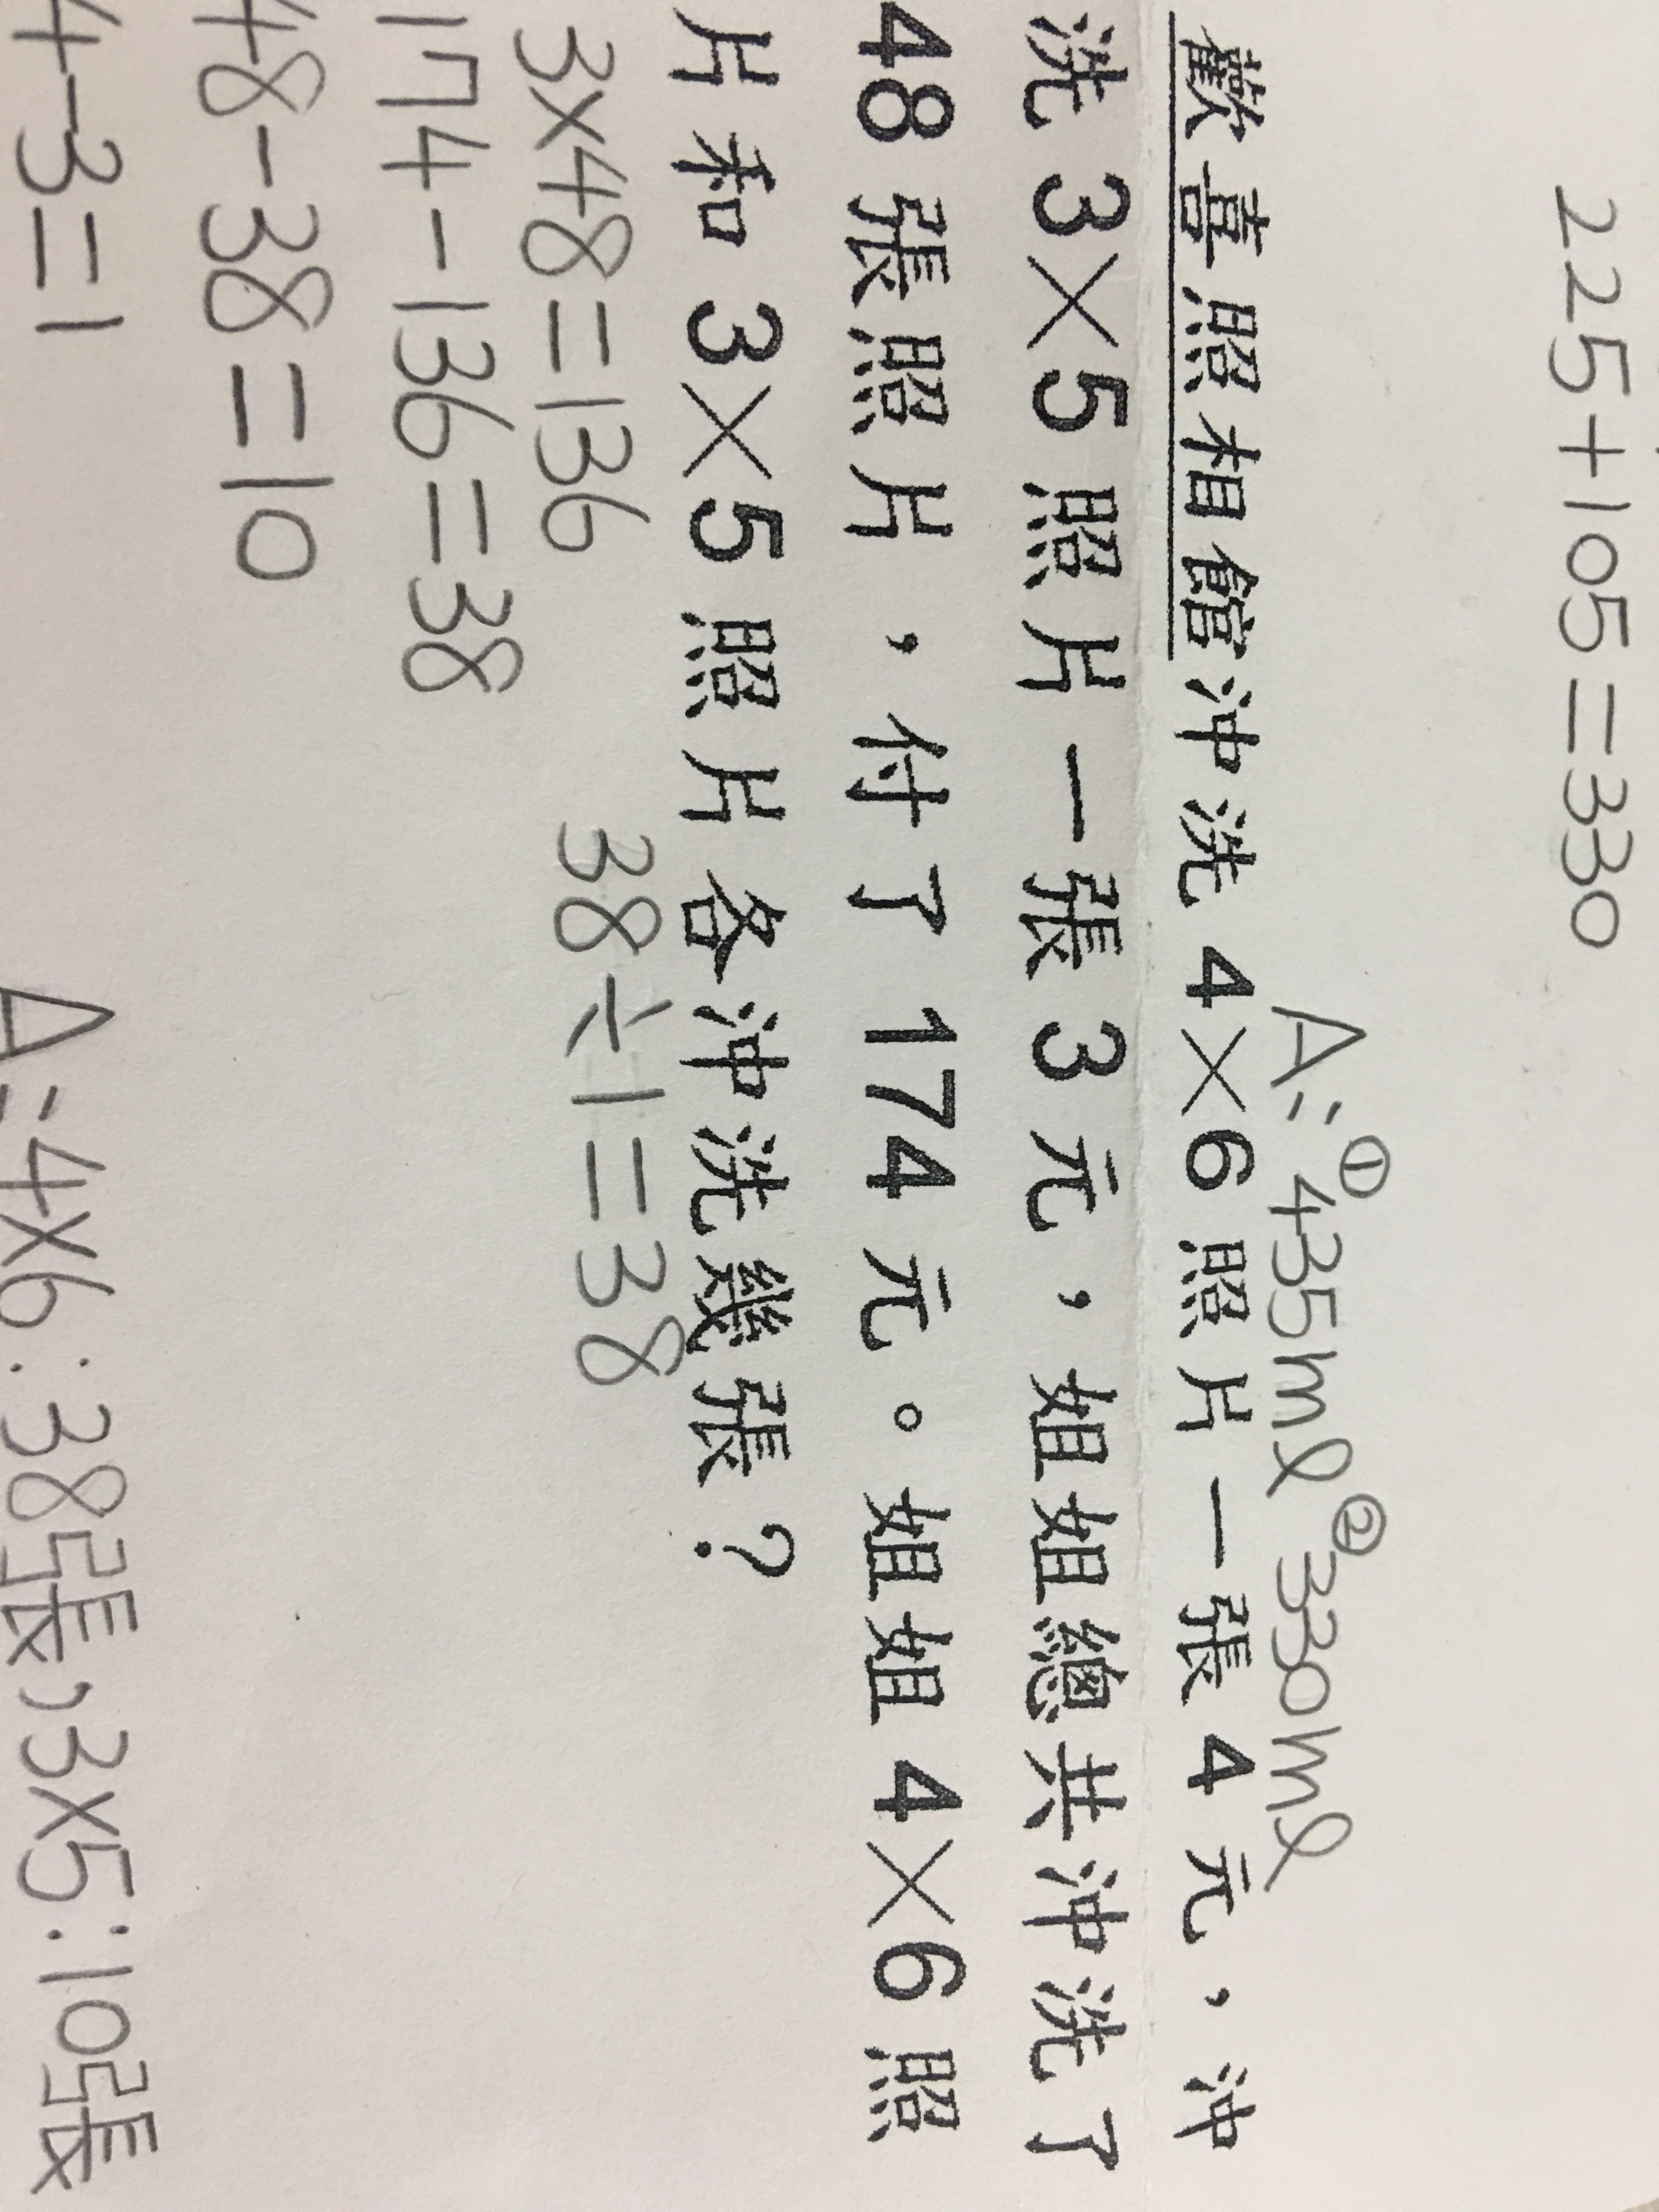 225+105=330
A:①435ml②330ml
歡喜照相館沖洗 4×6 照片一張 4 元，沖
洗 3×5 照片一張 3 元，姐姐總共沖洗了
48 張照片，付了 174 元。姐姐 4×6 照
片和 3×5 照片各沖洗幾張？
3×48=136
38÷1=38
174-136=38
48-38=10
4-3=1
A:4×6:38張,3×5:10張